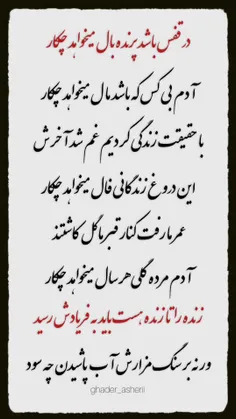 در قفس باشد پرنده بال میخواهد چکار
آدم بی کس که باشد مال میخواهد چکار
با حقیقت زندگی کردیم غم شد آخرش
این دروغ زندگانی فال میخواهد چکار
عمر ما رفت کنار قبر ما گل کاشتند
آدم مرده گلی هر سال میخواهد چکار
زنده را تا زنده هست باید به فریادش رسید
ورنه بر سنگ مزارش آب پاشیدن چه سود
ghader_asheri